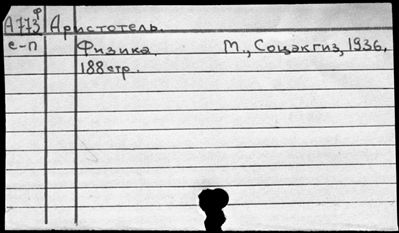 А773ф Аристотель.
с-п Физика. М., Соцэкгиз, 1936.
188стр.